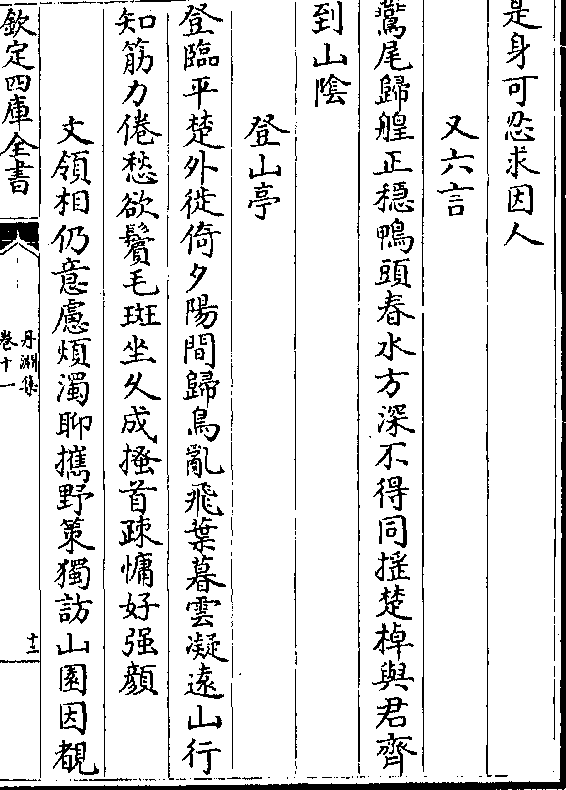 是身可忍求因人
又六言
尾歸艎正穩鴨頭春水方深不得同揺楚棹與君齊
到山陰
登山亭
登臨平楚外徙倚夕陽間歸鳥亂飛葉暮雲凝遠山行
知筋力倦愁欲鬢毛斑坐久成搔首疎慵好强顔
文領相仍意慮煩濁聊擕野策獨訪山園因覩
欽定四庫全書
丹淵集
卷十一